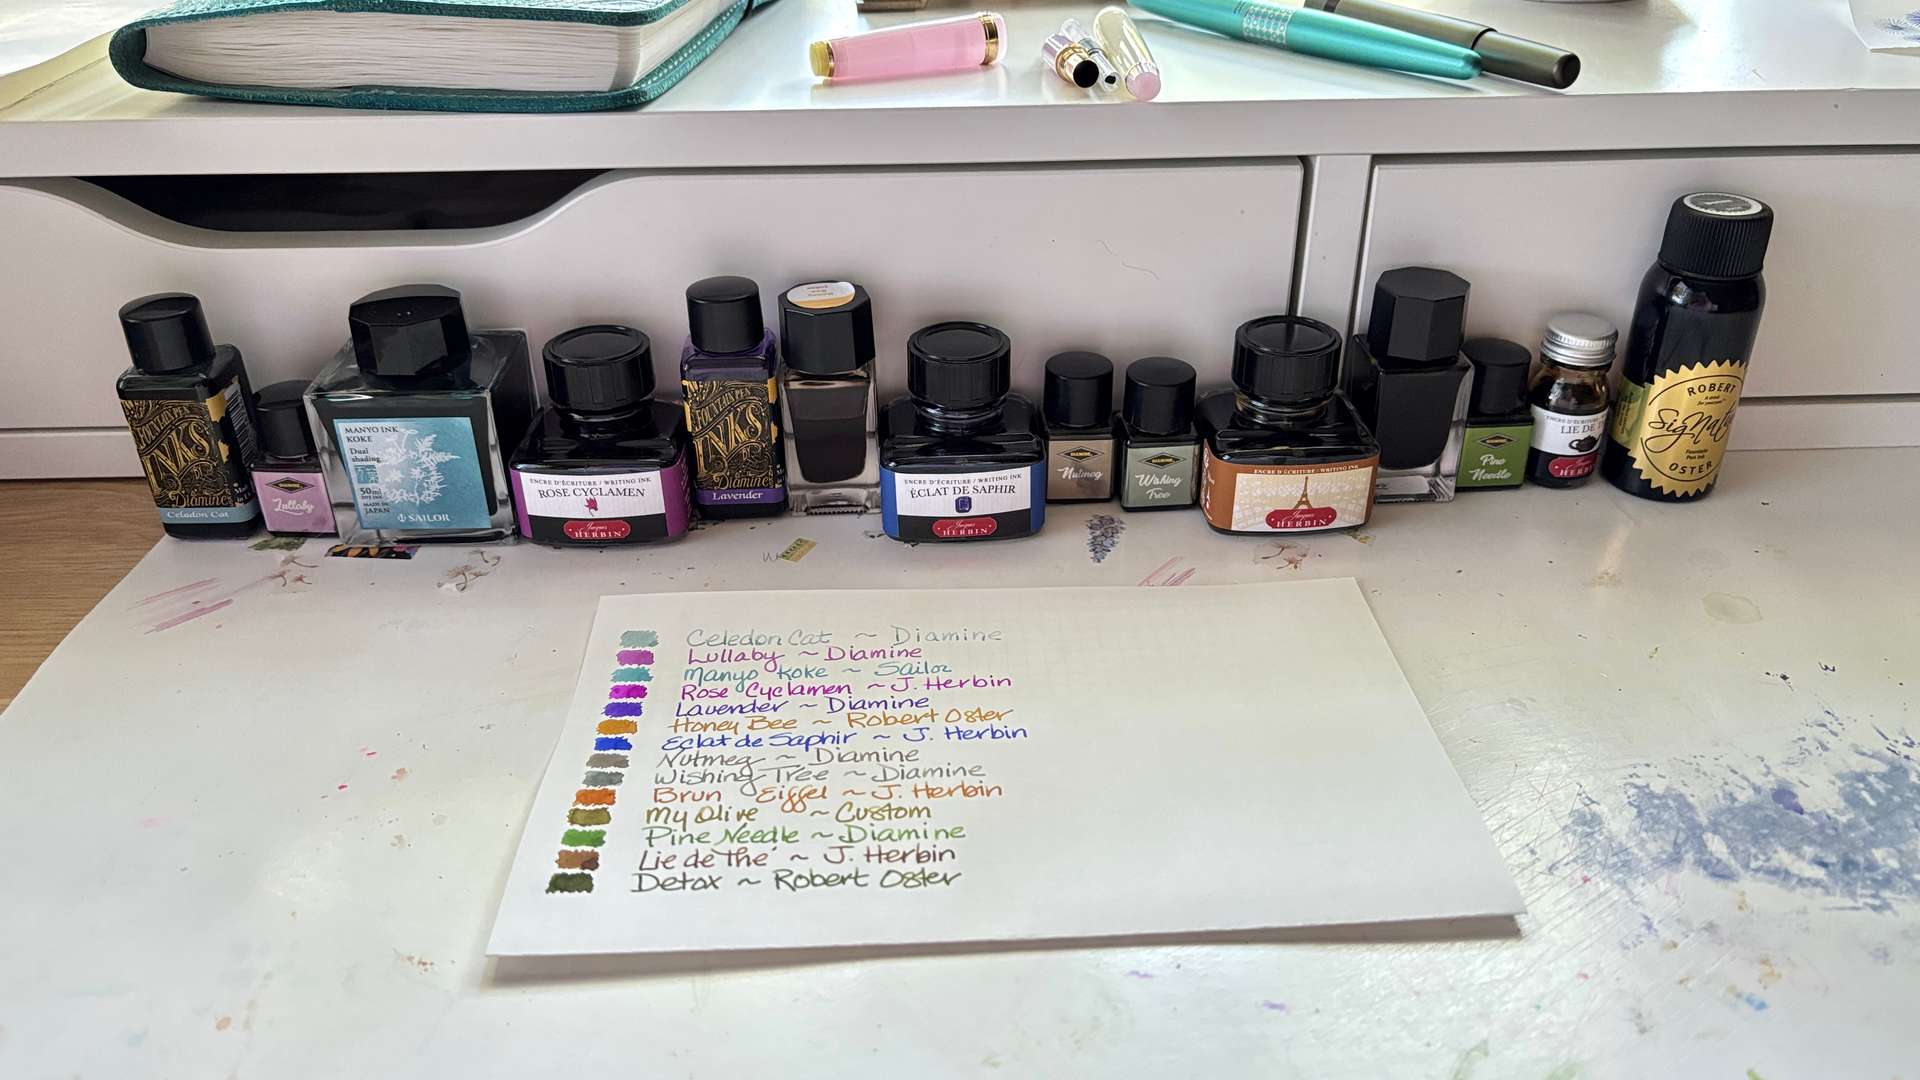 FOUNTAIN PEN
INKS
Diamine
Celadon Cat
DIAMINE
Lullaby
MANYO INK
KOKE
Dual
shading
50ml
MADE IN
JAPAN
SAILOR
ENCRE D'ÉCRITURE / WRITING INK
ROSE CYCLAMEN
Jacques
HERBIN
FOUNTAIN PEN
INKS
Diamine
Lavender
ENCRE D'ÉCRITURE / WRITING INK
ÉCLAT DE SAPHIR
Jacques
HERBIN
DIAMINE
Nutmeg
DIAMINE
Wishing
Tree
ENCRE D'ÉCRITURE / WRITING INK
Jacques
HERBIN
DIAMINE
Pine
Needle
ENCRE D'ÉCRITURE
LIE DE
HERBIN
ROBERT
Signature
Fountain
Pen Ink
OSTER
Celedon Cat ~ Diamine
Lullaby ~ Diamine
Manyo Koke ~ Sailor
Rose Cyclamen ~ J. Herbin
Lavender ~ Diamine
Honey Bee ~ Robert Oster
Eclat de Saphir ~ J. Herbin
Nutmeg ~ Diamine
Wishing Tree ~ Diamine
Brun Eiffel ~ J. Herbin
My Olive ~ Custom
Pine Needle ~ Diamine
Lie de Thé ~ J. Herbin
Detox ~ Robert Oster